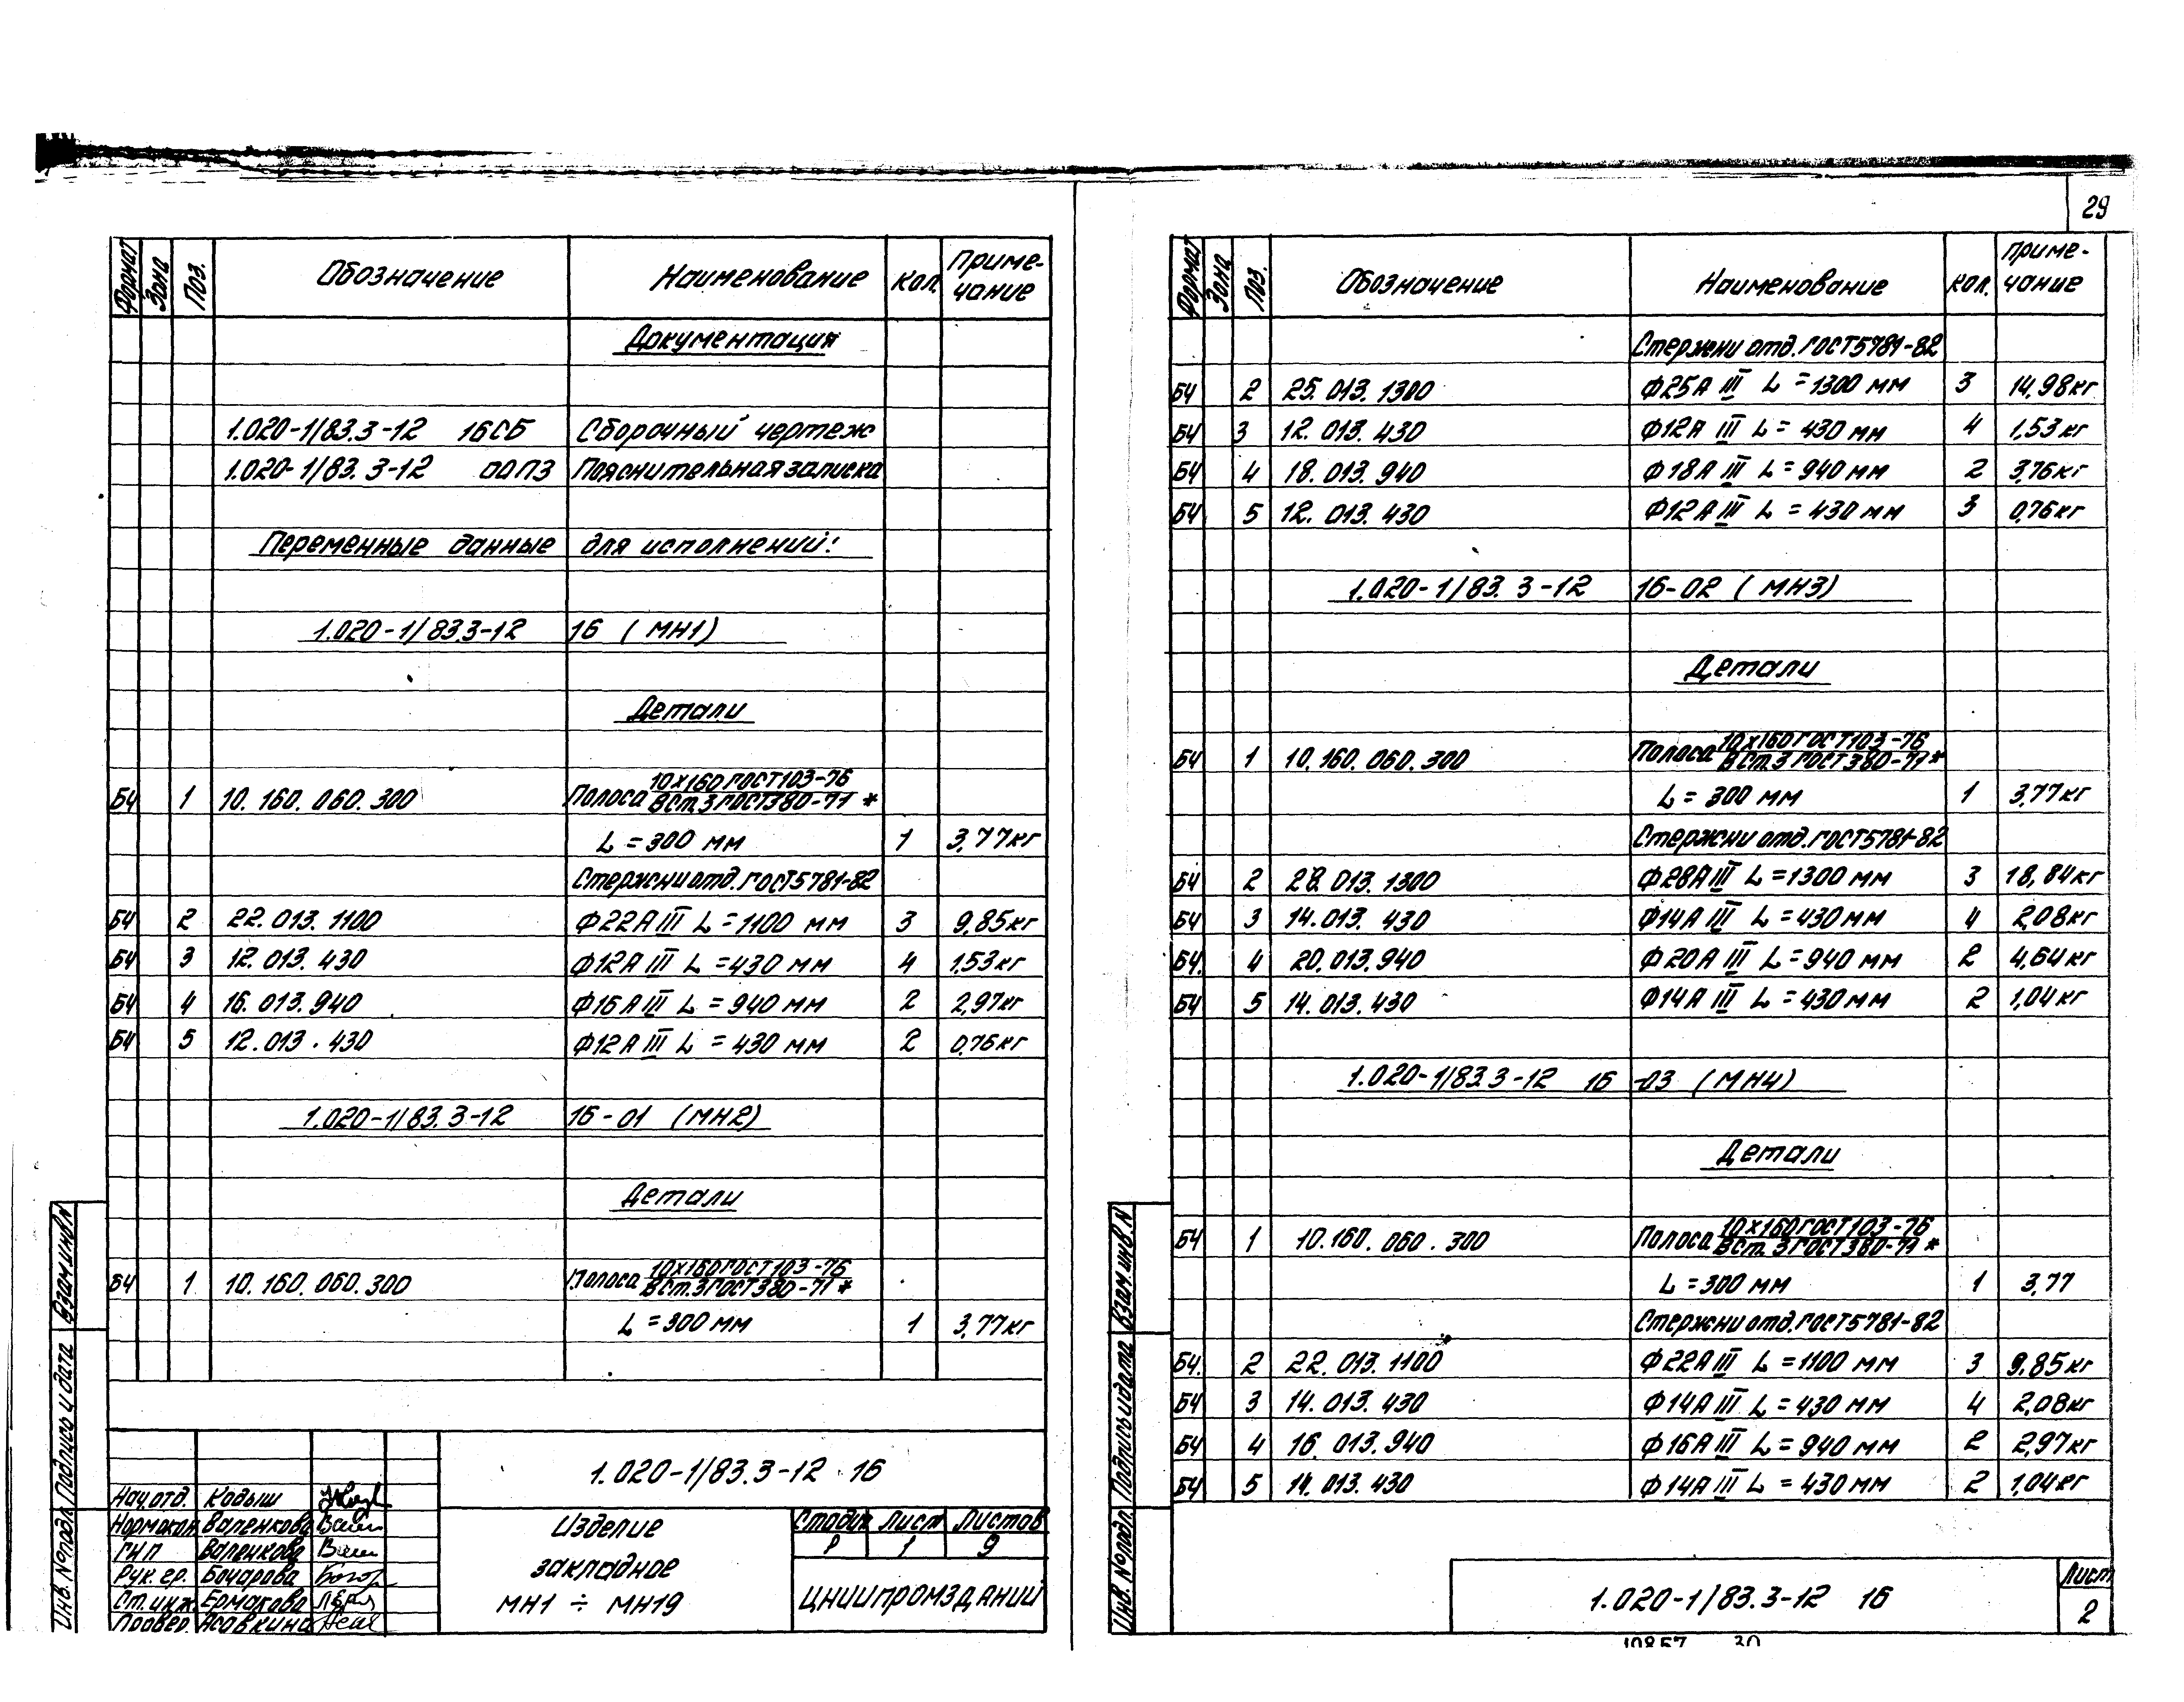 29
Формат Зона Поз. Обозначение Наименование Кол. Приме-
чание
Документация
1.020-1/83.3-12 16СБ Сборочный чертеж
1.020-1/83.3-12 00ПЗ Пояснительная записка
Переменные данные для исполнений:
1.020-1/83.3-12 16 (МН1)
Детали
БЧ 1 10.160.060.300 Полоса 10х160 ГОСТ103-76
ВСт.3 ГОСТ380-71*
L=300 мм 1 3,77кг
Стержни отд. ГОСТ5781-82
БЧ 2 22.013.1100 Ф22АIII L=1100 мм 3 9,85кг
БЧ 3 12.013.430 Ф12АIII L=430 мм 4 1,53кг
БЧ 4 16.013.940 Ф16АIII L=940 мм 2 2,97кг
БЧ 5 12.013.430 Ф12АIII L=430 мм 2 0,76кг
1.020-1/83.3-12 16-01 (МН2)
Детали
БЧ 1 10.160.060.300 Полоса 10х160 ГОСТ103-76
ВСт.3 ГОСТ380-71*
L=300 мм 1 3,77кг
1.020-1/83.3-12 16
Нач.отд. Кодыш
Нормокон. Валенкова
ГИП Валенкова
Рук. гр. Бочарова
Ст. инж. Ермакова
Провер. Асавкина
Изделие
закладное
МН1 ÷ МН19
Стадия Лист Листов
Р 1 9
ЦНИИПРОМЗДАНИЙ
Инв. № подл. Подпись и дата Взам.инв.N
Формат Зона Поз. Обозначение Наименование Кол. Приме-
чание
Стержни отд. ГОСТ5781-82
БЧ 2 25.013.1300 Ф25АIII L=1300 мм 3 14,98кг
БЧ 3 12.013.430 Ф12АIII L=430 мм 4 1,53кг
БЧ 4 18.013.940 Ф18АIII L=940 мм 2 3,76кг
БЧ 5 12.013.430 Ф12АIII L=430 мм 3 0,76кг
1.020-1/83.3-12 16-02 (МН3)
Детали
БЧ 1 10.160.060.300 Полоса 10х160 ГОСТ103-76
ВСт.3 ГОСТ380-71*
L=300 мм 1 3,77кг
Стержни отд. ГОСТ5781-82
БЧ 2 28.013.1300 Ф28АIII L=1300 мм 3 18,84кг
БЧ 3 14.013.430 Ф14АIII L=430 мм 4 2,08кг
БЧ. 4 20.013.940 Ф20АIII L=940 мм 2 4,64кг
БЧ 5 14.013.430 Ф14АIII L=430 мм 2 1,04кг
1.020-1/83.3-12 16-03 (МН4)
Детали
БЧ 1 10.160.060.300 Полоса 10х160 ГОСТ103-76
ВСт.3 ГОСТ380-71*
L=300 мм 1 3,77
Стержни отд. ГОСТ5781-82
БЧ. 2 22.013.1100 Ф22АIII L=1100 мм 3 9,85кг
БЧ 3 14.013.430 Ф14АIII L=430 мм 4 2,08кг
БЧ 4 16.013.940 Ф16АIII L=940 мм 2 2,97кг
БЧ 5 14.013.430 Ф14АIII L=430 мм 2 1,04кг
1.020-1/83.3-12 16
Лист
2
Инв. № подл. Подпись и дата Взам.инв.N